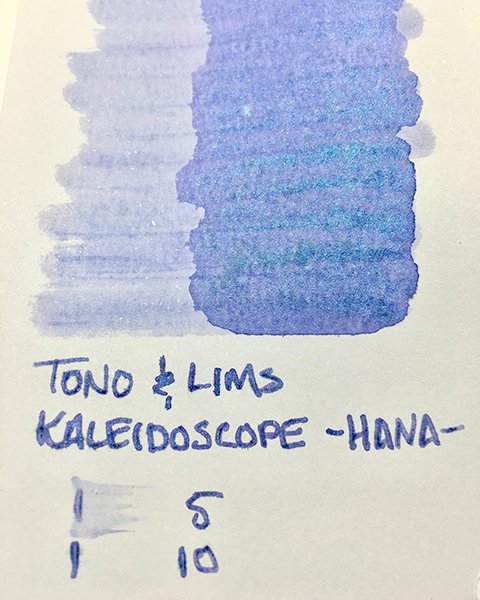 TONO & LIMS
KALEIDOSCOPE -HANA-
1 5
1 10